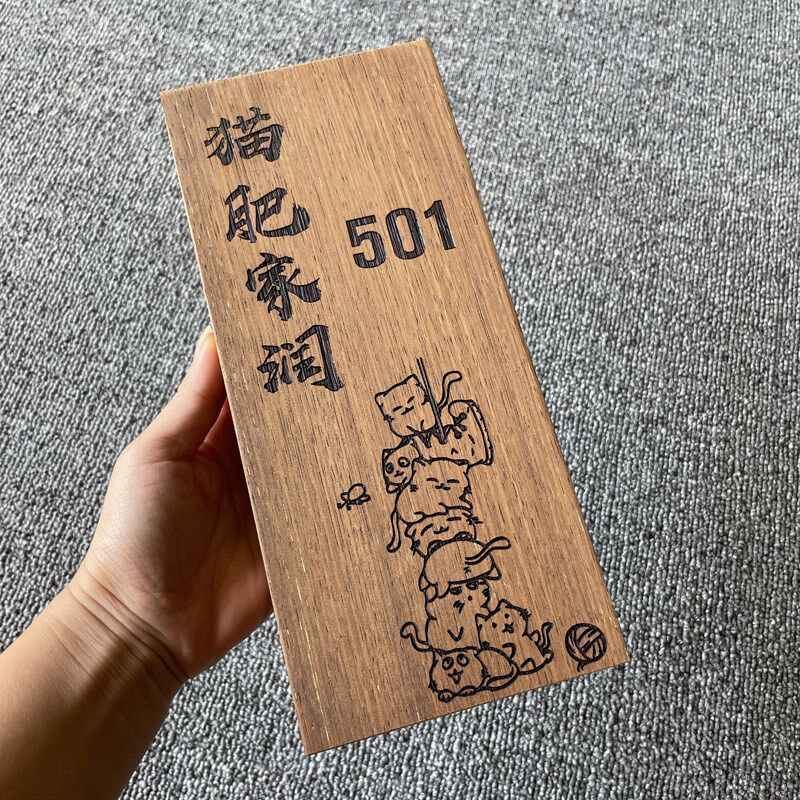 猫肥家润
501